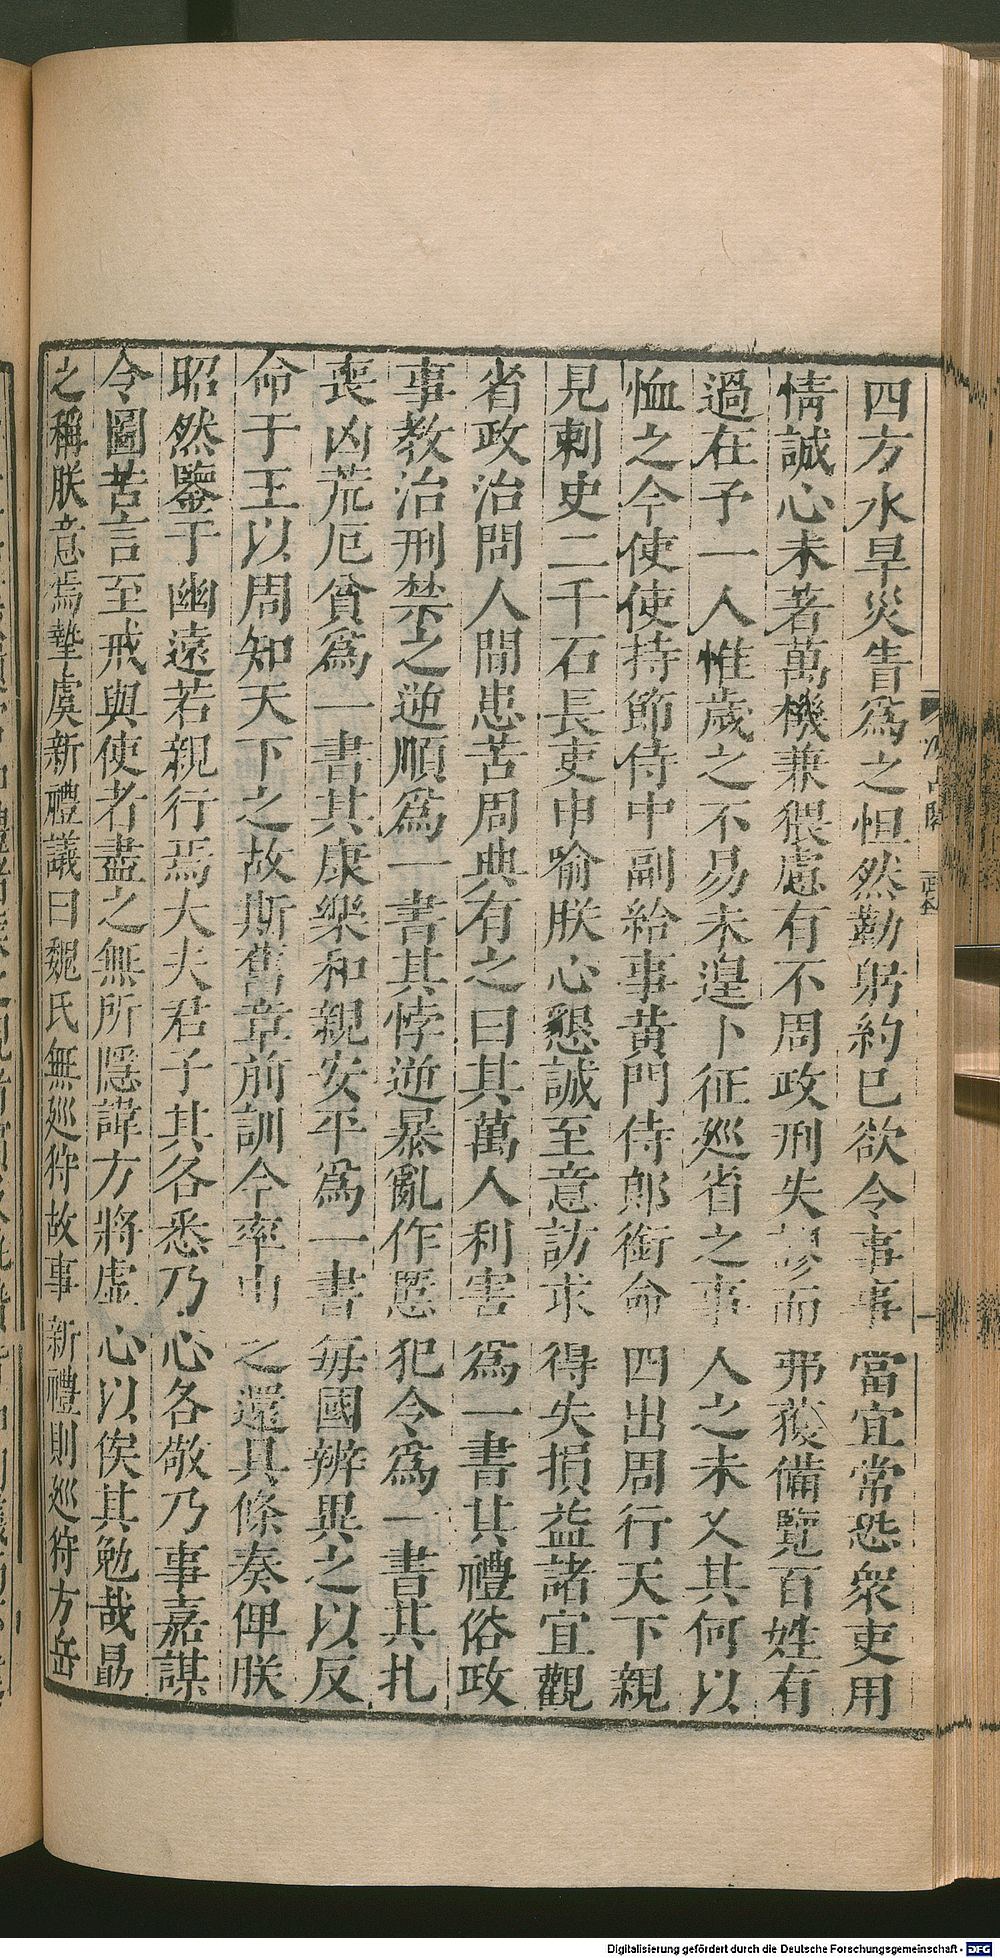 四方水旱災眚爲之怛然勤躬約己欲令事事當宜常恐衆吏用
情誠心未著萬機兼猥慮有不周政刑失謬而弗獲備覽百姓有
過在予一人惟歲之不易未遑卜征巡省之事人之未乂其何以
恤之今使使持節侍中副給事黃門侍郎銜命四出周行天下親
見刺史二千石長吏申喻朕心懇誠至意訪求得失損益諸宜觀
省政治問人間患苦周典有之曰其萬人利害爲一書其禮俗政
事教治刑禁之逆順爲一書其悖逆暴亂作慝犯令爲一書其札
喪凶荒厄貧爲一書其康樂和親安平爲一書每國辨異之以反
命于王以周知天下之故斯舊章前訓今率由之還具條奏俾朕
昭然鑒于幽遠若親行焉大夫君子其各悉乃心各敬乃事嘉謀
令圖苦言至戒與使者盡之無所隱諱方將虛心以俟其勉哉勗
之稱朕意焉摯虞新禮議曰魏氏無巡狩故事新禮則巡狩方岳
Digitalisierung gefördert durch die Deutsche Forschungsgemeinschaft - DFG